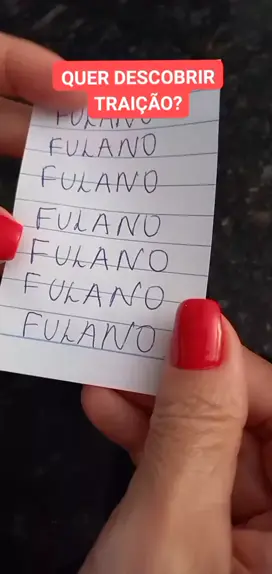 QUER DESCOBRIR
TRAIÇÃO?
FULANO
FULANO
FULANO
FULANO
FULANO
FULANO
FULANO